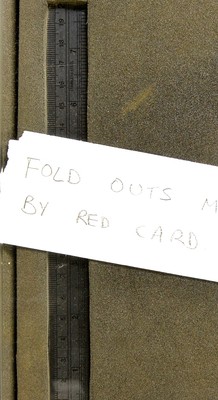 FOLD OUTS M
BY RED CARD